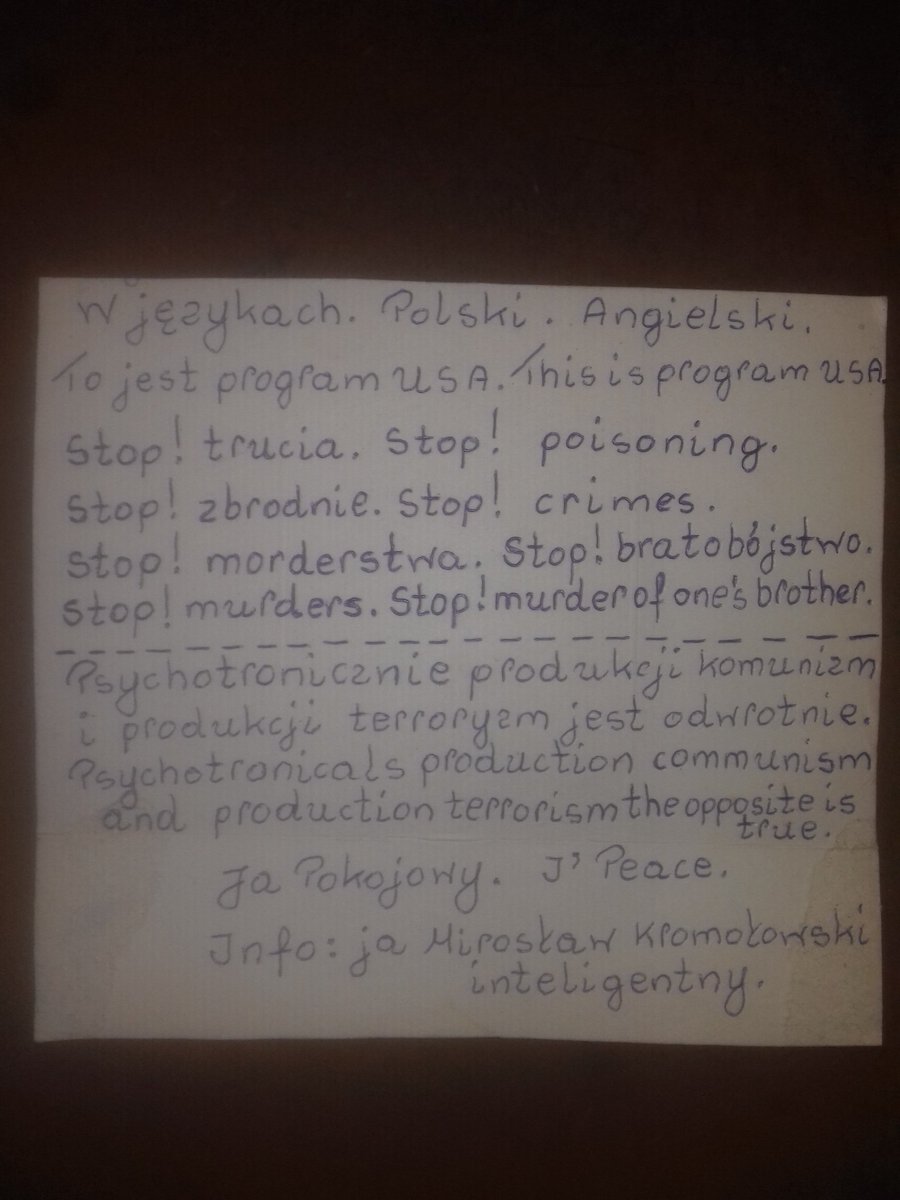 W językach. Polski. Angielski.
To jest program USA. This is program USA.
Stop! trucia. Stop! poisoning.
Stop! zbrodnie. Stop! crimes.
Stop! morderstwa. Stop! bratobójstwo.
Stop! murders. Stop! murder of one's brother.
Psychotronicznie produkcji komunizm
i produkcji terroryzm jest odwrotnie.
Psychotronicals production communism
and production terrorism the opposite is
true.
Ja Pokojowy. J' Peace.
Info: ja Mirosław Kromołowski
inteligentny.